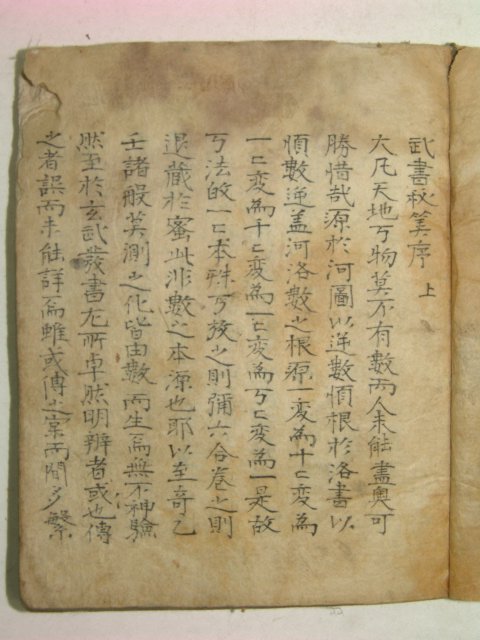 武書秘筭序 上
大凡天地丂物莫不有數而人未能盡奧可
勝惜哉源於河圖以逆數愼根於洛書以
愼數逆盖河洛數之根源一變為十匕變為
一匕變為十匕變為一匕變為丂匕變為一是故
丂法的一匕本殊丂放之則彌六合卷之則
退藏於蜜此非數之本源也耶以至奇乙
壬諸般莫測之化皆由數而生焉無不神驗
然至於玄武發書尤所卓然明辨者或也傳
之者誤而未能詳焉雖或傳之業而間多繁